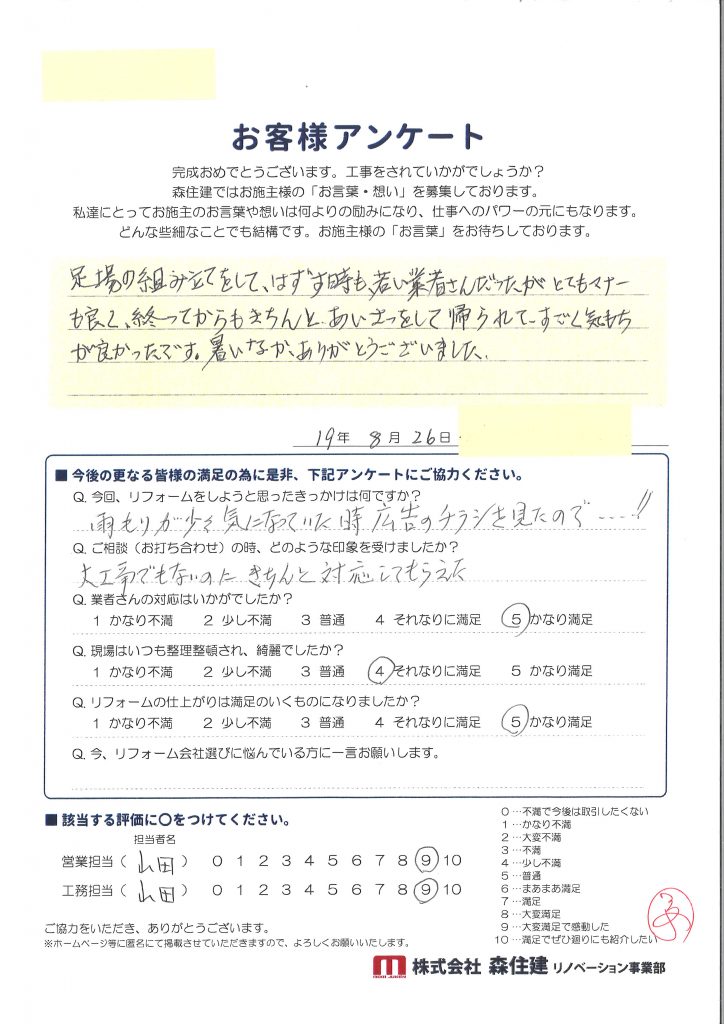 お客様アンケート
完成おめでとうございます。工事をされていかがでしょうか？
森住建ではお施主様の「お言葉・想い」を募集しております。
私達にとってお施主のお言葉や想いは何よりの励みになり、仕事へのパワーの元にもなります。
どんな些細なことでも結構です。お施主様の「お言葉」をお待ちしております。
足場の組み立てをして、はずす時も、若い業者さんだったがとてもマナー
も良く、終ってからもきちんと、あいさつをして帰られて、すごく気もち
が良かったです。暑いなか、ありがとうございました。
19年 8月 26日
■ 今後の更なる皆様の満足の為に是非、下記アンケートにご協力ください。
Q. 今回、リフォームをしようと思ったきっかけは何ですか？
雨もりが少々気になっていた時広告のチラシを見たので‥‥!!
Q. ご相談（お打ち合わせ）の時、どのような印象を受けましたか？
大工事でもないのに きちんと対応してもらえた
Q. 業者さんの対応はいかがでしたか？
1 かなり不満 2 少し不満 3 普通 4 それなりに満足 5 かなり満足
Q. 現場はいつも整理整頓され、綺麗でしたか？
1 かなり不満 2 少し不満 3 普通 4 それなりに満足 5 かなり満足
Q. リフォームの仕上がりは満足のいくものになりましたか？
1 かなり不満 2 少し不満 3 普通 4 それなりに満足 5 かなり満足
Q. 今、リフォーム会社選びに悩んでいる方に一言お願いします。
■ 該当する評価に〇をつけてください。
担当者名
営業担当（ 山田 ） 0 1 2 3 4 5 6 7 8 9 10
工務担当（ 山田 ） 0 1 2 3 4 5 6 7 8 9 10
0 …不満で今後は取引したくない
1 …かなり不満
2 …大変不満
3 …不満
4 …少し不満
5 …普通
6 …まあまあ満足
7 …満足
8 …大変満足
9 …大変満足で感動した
10 …満足でぜひ廻りにも紹介したい
ご協力をいただき、ありがとうございます。
※ホームページ等に匿名にて掲載させていただきますので、よろしくお願いいたします。
株式会社 森住建 リノベーション事業部